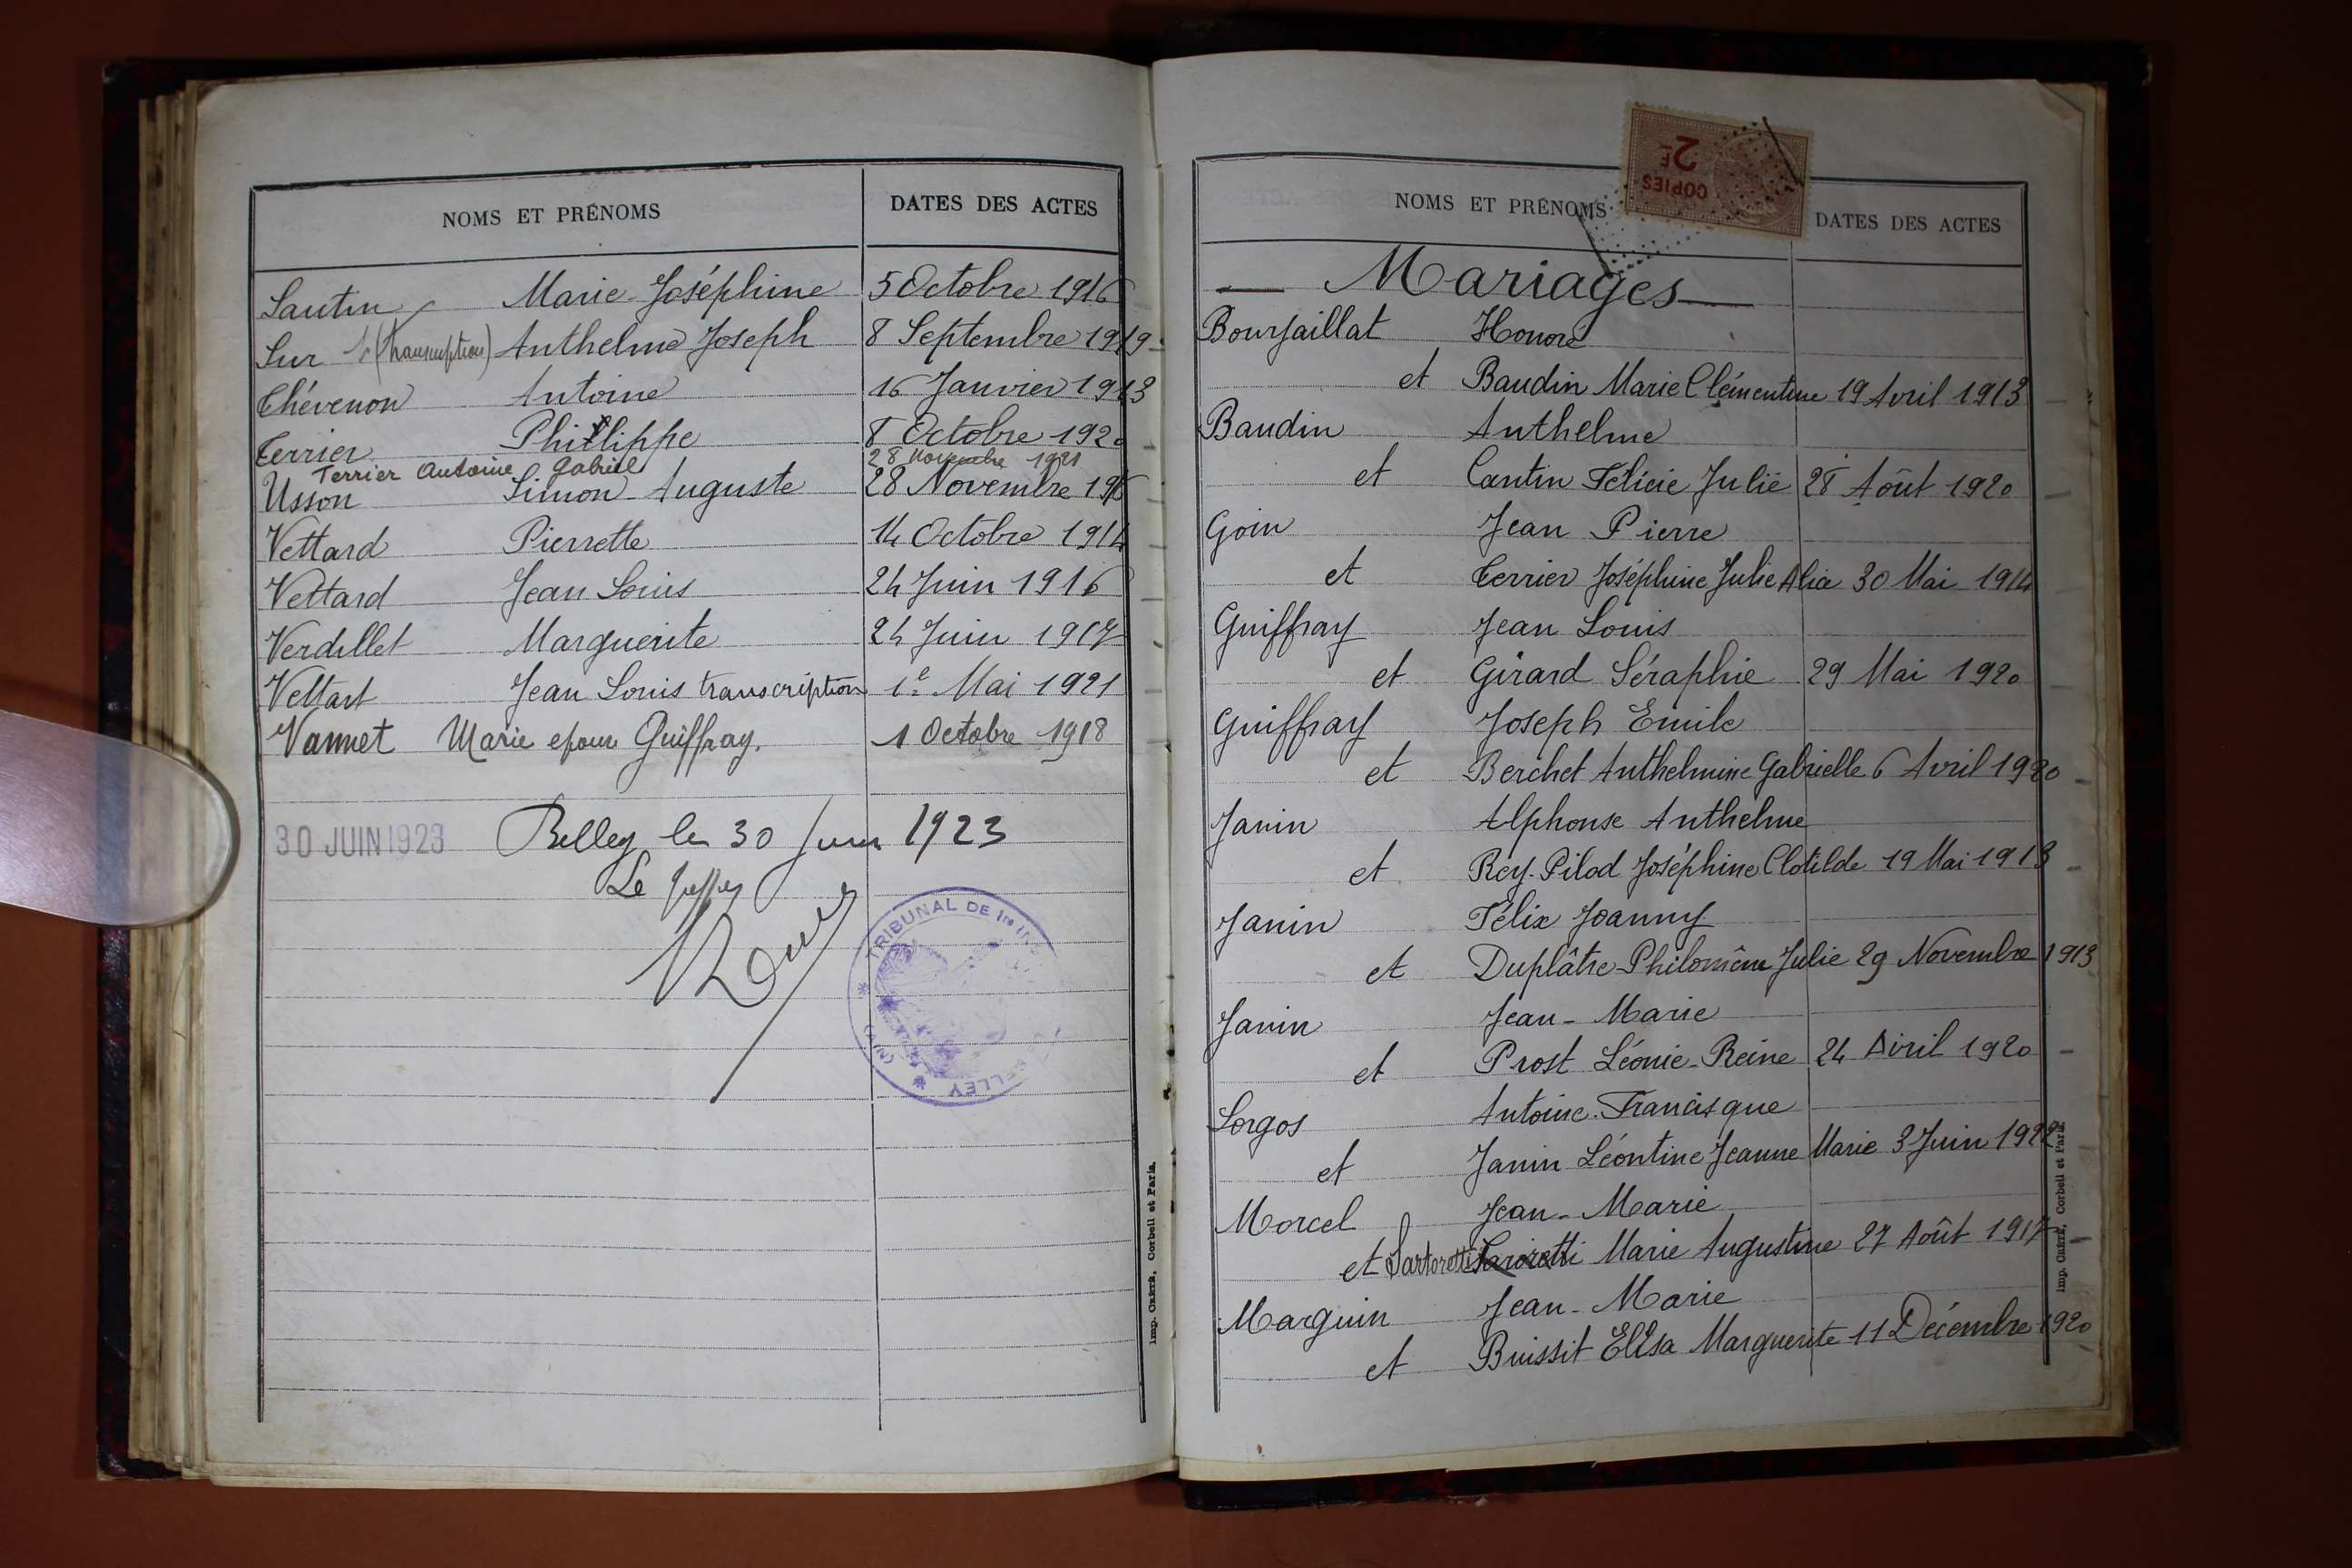 NOMS ET PRÉNOMS DATES DES ACTES
Santin Marie-Joséphine 5 Octobre 1916
Sur (transcription) Anthelme Joseph 8 Septembre 1919
Thévenon Antoine 16 Janvier 1913
Terrier Philippe 8 Octobre 1920
Terrier Antoine Gabriel 28 Novembre 1921
Usson Simon Auguste 28 Novembre 1916
Vettard Pierrette 14 Octobre 1914
Vettard Jean Louis 24 Juin 1916
Verdillet Marguerite 24 Juin 1917
Vettart Jean Louis transcription 1e Mai 1921
Vannet Marie epouse Guiffray. 1 Octobre 1918
30 JUIN 1923 Belley le 30 Juin 1923
Le
TRIBUNAL DE 1re
BELLEY
(AIN)
Imp. Oxérà, Corbeil et Paris.
COPIES
2F
NOMS ET PRÉNOMS DATES DES ACTES
— Mariages —
Bourjaillat Honoré
et Baudin Marie Clémentine 19 Avril 1913
Baudin Anthelme
et Cantin Félicie Julie 28 Août 1920
Goin Jean Pierre
et Terrier Joséphine Julie Alice 30 Mai 1914
Guiffray Jean Louis
et Girard Séraphie 29 Mai 1920
Guiffray Joseph Emile
et Berchet Anthelmine Gabrielle 6 Avril 1920
Janin Alphonse Anthelme
et Rey-Pilod Joséphine Clotilde 19 Mai 1913
Janin Félix Joanny
et Duplâtre Philomène Julie 29 Novembre 1913
Janin Jean-Marie
et Prost Léonie-Reine 24 Avril 1920
Lorgos Antoine-Francisque
et Janin Léontine Jeanne Marie 3 Juin 1922
Morcel Jean-Marie
et Sartoretti Marie Augustine 27 Août 1917
Marguin Jean-Marie
et Buissit Elisa Marguerite 11 Décembre 1920
Imp. Oxérà, Corbeil et Paris.